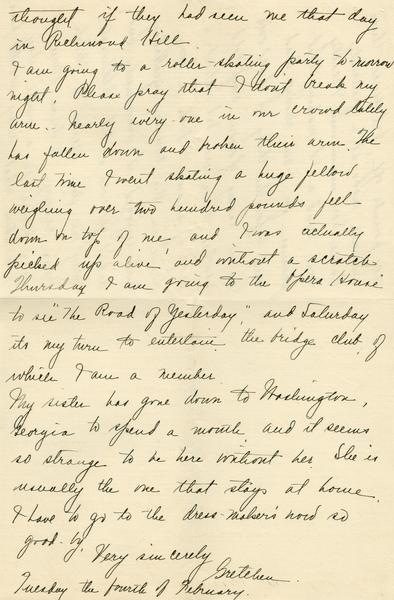 thought if they had seen me that day
in Richmond Hill.
I am going to a roller skating party to-morrow
night. Please pray that I don't break my
arm. Nearly every-one in our crowd lately
has fallen down and broken their arm. The
last time I went skating a huge fellow
weighing over two hundred pounds feel
down on top of me and I was actually
picked up "alive" and without a scratch
Thursday I am going to the Opera House
to see "The Road of Yesterday", and Saturday
its my turn to entertain the bridge club, of
which I am a member.
My sister has gone down to Washington,
Georgia to spend a month and it seems
so strange to be here without her. She is
usually the one that stays at home.
I have to go to the dress-maker's now so
good-by,
Very sincerely
Gretchen.
Tuesday the fourth of February.